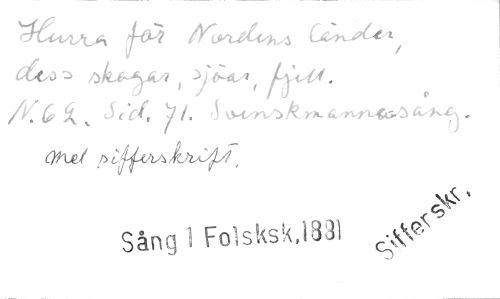 Hurra för Nordens länder,
dess skogar, sjöar, fjell.
N. 62. Sid. 71. Svenskmannasång.
med sifferskrift.
Sång 1 Folsksk,1881
Sifferskr.